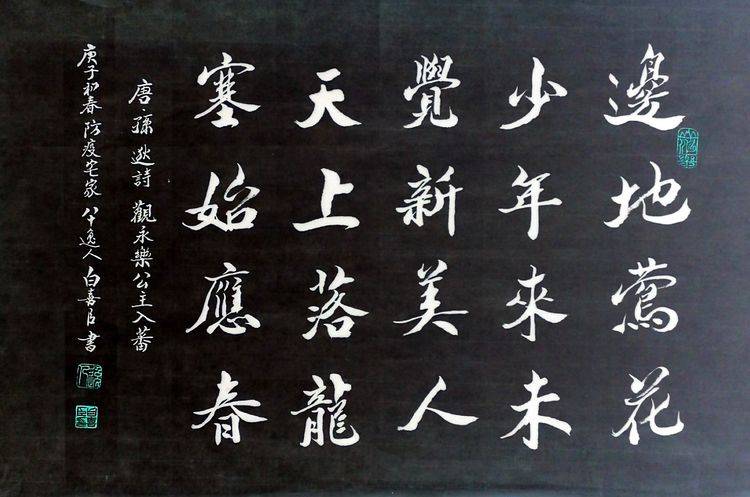 邊地鶯花
少年來未
覺新美人
天上落龍
塞始應春
唐·孫逖詩 觀永樂公主入蕃
庚子初春防疫宅家 八十逸人 白喜臣 書